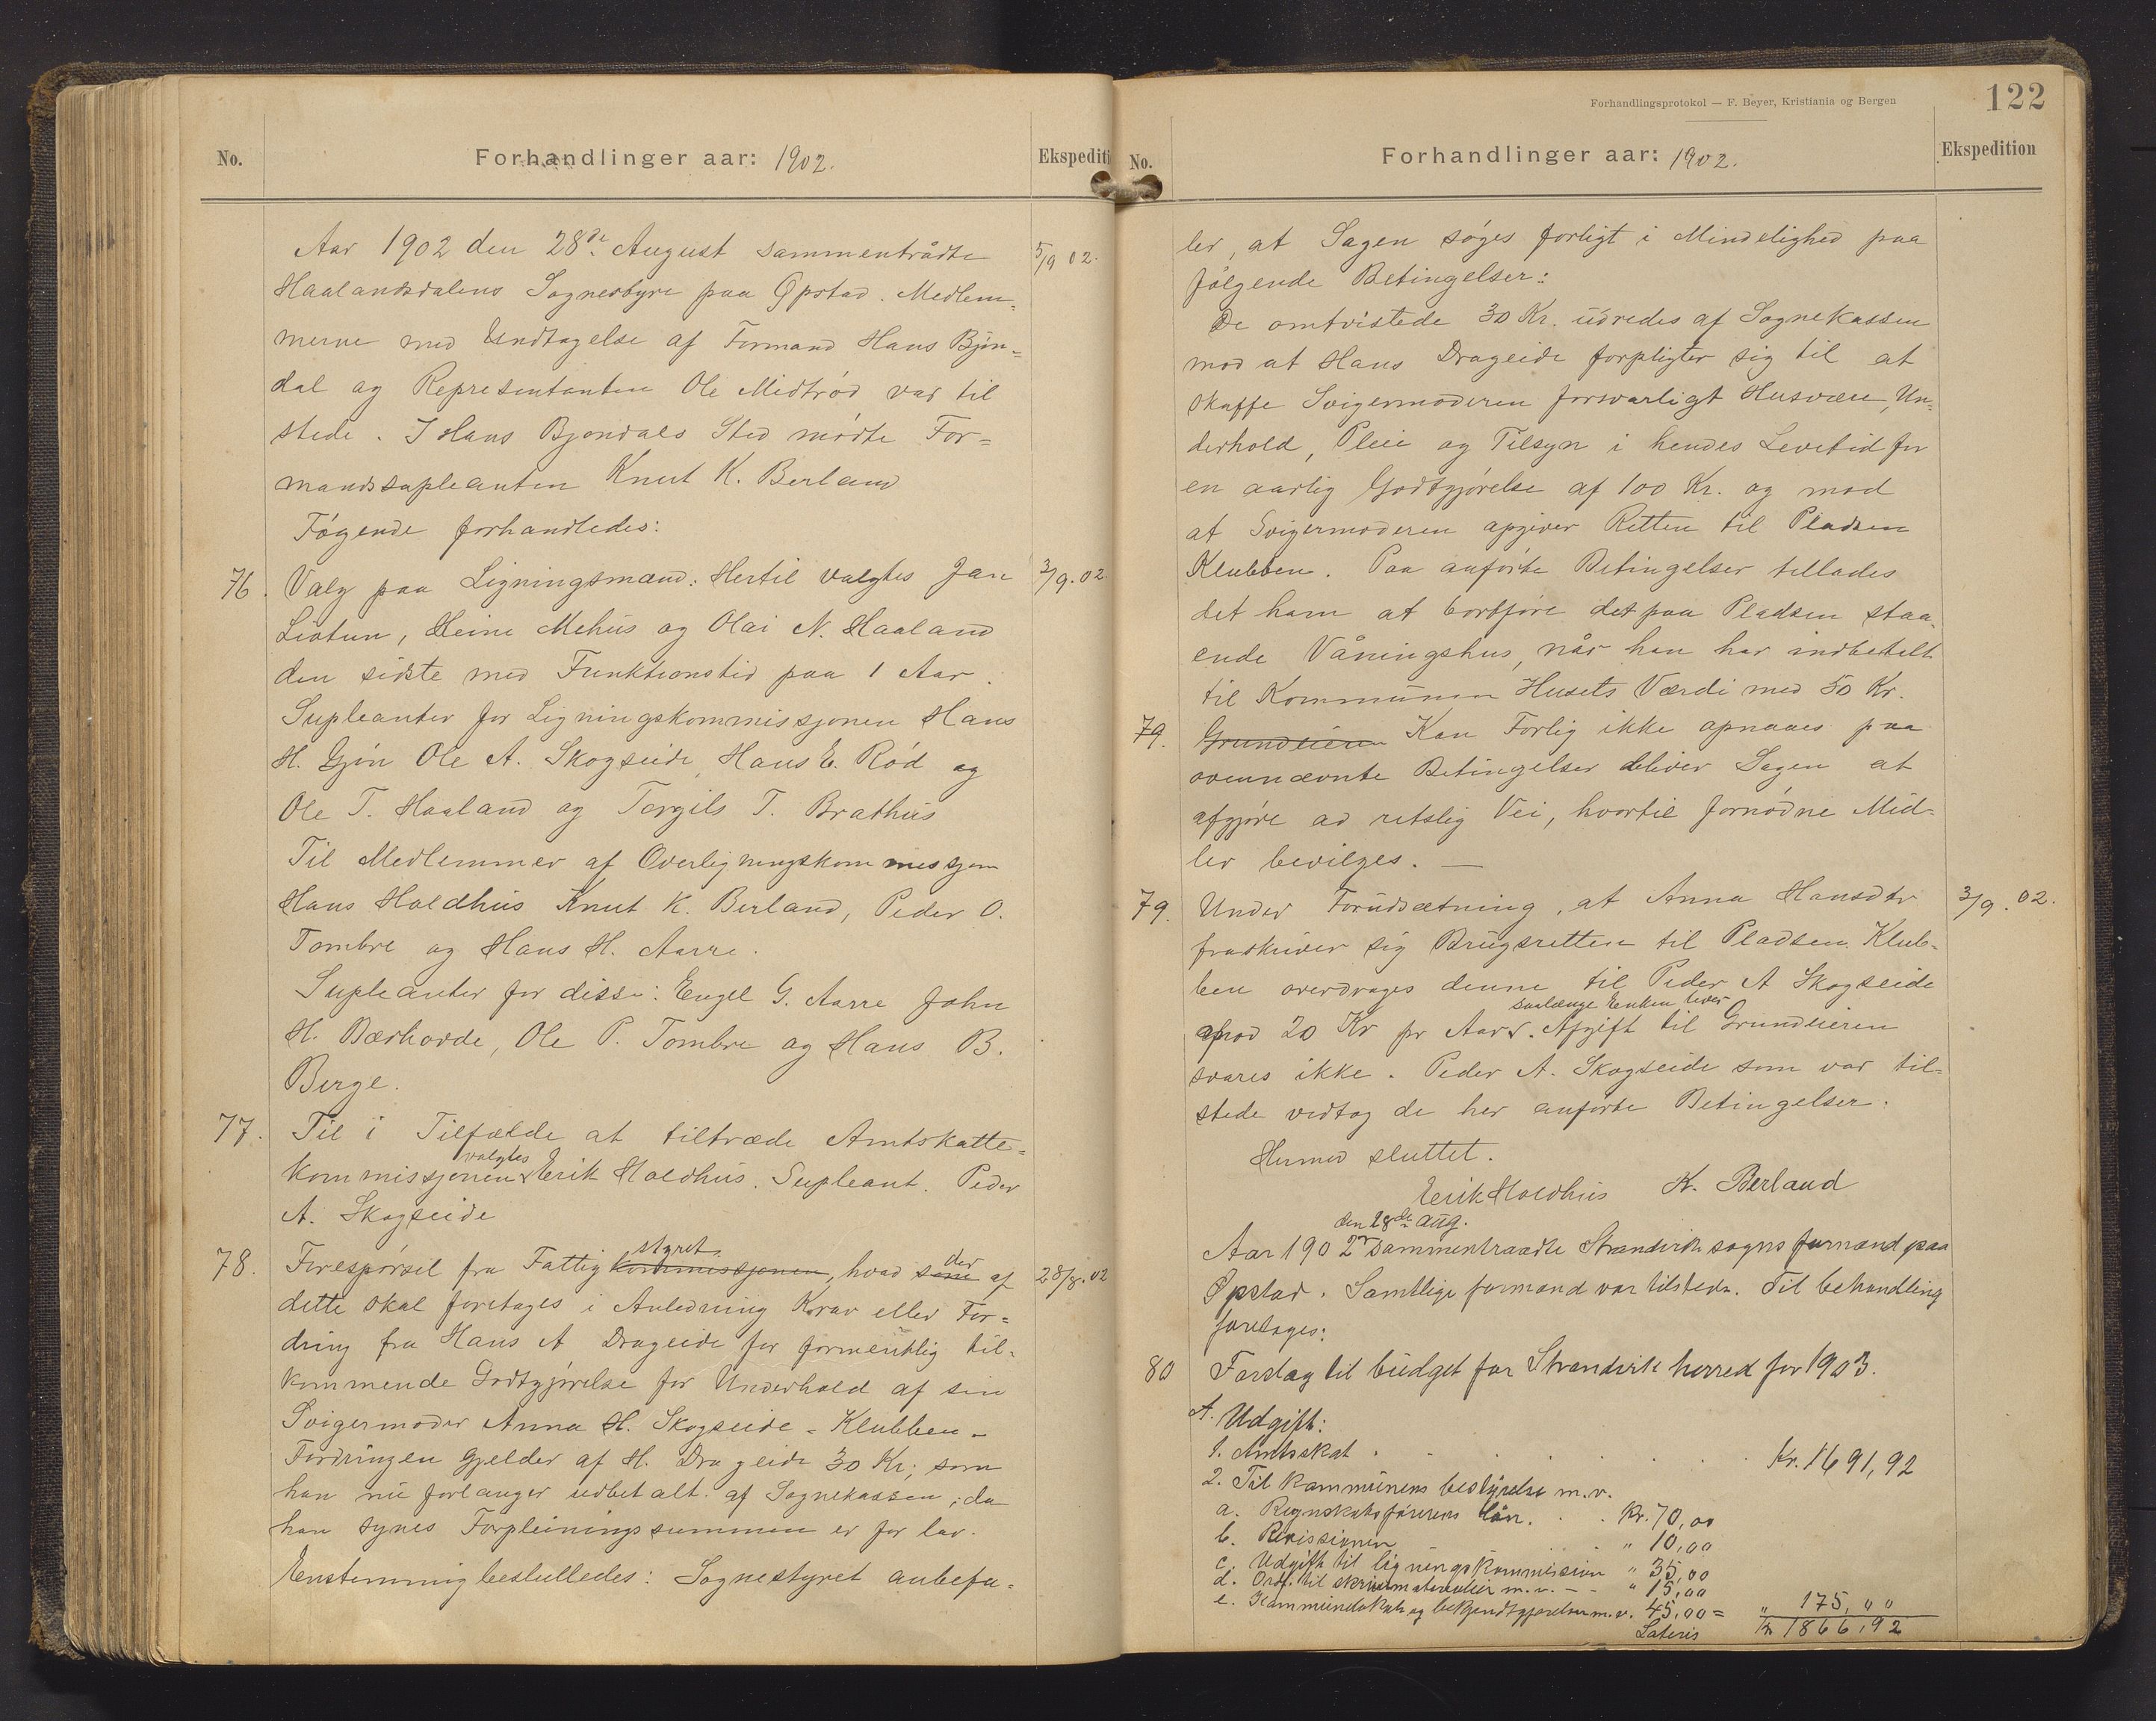 No.
Forhandlinger aar: 1902.
Ekspediti
Aar 1902 den 28de August sammentrådte
5/9 02.
Haalandsdalens Sognestyre paa Øpstad. Medlem-
merne med Undtagelse af Formand Hans Bjøn-
dal og Representanten Ole Midtrød var til
stede. I Hans Bjondals Sted mødte For-
mandssupleanten Knut K. Berland
Føgende forhandledes:
76. Valg paa Ligningsmænd: Hertil valgtes Jan
3/9.02.
Liatun, Heine Mehus og Olai N. Haaland
den sidste med Funktionstid paa 1 Aar.
Supleanter for Ligningskommissjonen Hans
H. Gjøn Ole A. Skogseide, Hans E. Rød og
Ole T. Haaland og Torgils T. Brathus
Til Medlemmer af Overligningskommissjon
Hans Holdhus Knut K. Berland, Peder O.
Tombre og Hans H. Aarre.
Supleanter for disse: Engel G. Aarre John
H. Bærhovde, Ole P. Tombre og Hans B.
Berge.
77. Til i Tilfælde at tiltræde Amtskatte-
kommissjonen valgtes Erik Holdhus. Supleant. Peder
A. Skogseide
78. Forespørsel fra Fattig kommissjonen styret, hvad som der af
28/8.02
dette skal foretages i Anledning Krav eller For-
dring fra Hans A Drageide for formentlig til-
kommende Godtgjørelse for Underhold af sin
Svigermoder Anna H. Skogseide - Klubben -
Fordringen gjelder af H. Drageide 30 Kr; som
han nu forlanger udbetalt af Sognekassen, da
han synes Forpleiningssummen er for lav.
Enstemmig beslulledes: Sognestyret anbefa-
Forhandlingsprotokol — F. Beyer, Kristiania og Bergen
122
No.
Forhandlinger aar: 1902.
Ekspedition
ler, at Sagen søges forligt i Mindelighed paa
følgende Betingelser:
De omtvistede 30 Kr. udredes af Sognekassen
mod at Hans Drageide forpligter sig til at
skaffe Svigermoderen forsvarligt Husvære, Un-
derhold, Pleie og Tilsyn i hendes Levetid for
en aarlig Godtgjørelse af 100 Kr. og mod
at Svigermoderen opgiver Retten til Pladsen
Klubben. Paa anførte Betingelser tillades
det ham at bortføre det paa Pladsen staa-
ende Våningshus, når han har indbetalt
til Kommunen Husets Værdi med 50 Kr.
79. Grundeieren Kan Forlig ikke opnaaes paa
ovennævnte Betingelser bliver Sagen at
afgjøre ad retslig Vei, hvortil fornødne Mid-
ler bevilges. —
79. Under Forudsætning, at Anna Hansdtr
3/9.02.
fraskriver sig Brugsretten til Pladsen Klub-
ben overdrages denne til Peder A Skogseide
saalænge Enken lever
mod 20 Kr pr Aar. Afgift til Grundeieren
svares ikke. Peder A. Skogseide som var til-
stede vedtog de her anførte Betingelser.
Hermed sluttet.
Erik Holdhus K. Berland
den 28de aug.
Aar 1902 sammentraadte Strandvik sogns formænd paa
Øpstad. Samtlige formænd var tilstede. Til behandling
foretages:
80 Forslag til budget for Strandvik herred for 1903.
A. Udgift:
1. Amtsskat . . . . . Kr. 1691,92
2. Til kommunens bestyrelse m.v.
a. Regnskabsførerens løn. . . Kr. 70,00
b. Revisionen . . " 10,00
c. Udgift til ligningskommission " 35,00
d. Ordf. til skrivematerialier m.v. - - " 15,00
e. Kommunelokale og bekjendtgjørelser m.v. 45,00 = " 175,00
Lateris Kr 1866,92